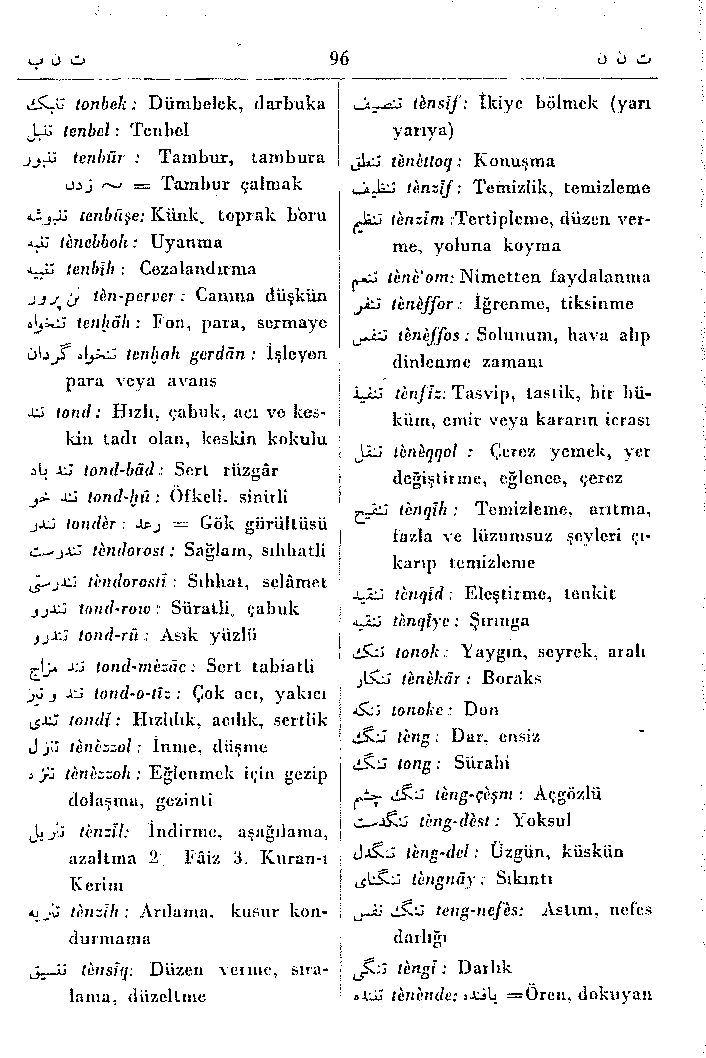 ت ن ب 96 ت ن ن
تنبك tonbek : Dümbelek, darbuka
تنبل tenbel : Tenbel
تنبور tenbūr : Tambur, tambura
~ زدن = Tambur çalmak
تنبوشه tenbūşe: Künk, toprak boru
تنبه tènebboh : Uyanma
تنبیه tenbīh : Cezalandırma
تن پرور tèn-perver : Canına düşkün
تنخواه tenḫāh : Fon, para, sermaye
تنخواه گردان tenḫah gerdān : İşleyen
para veya avans
تند tond : Hızlı, çabuk, acı ve kes-
kin tadı olan, keskin kokulu
تند باد tond-bād : Sert rüzgâr
تند خو tond-ḫū : Öfkeli, sinirli
تندر tondèr : رعد = Gök gürültüsü
تندرست tèndorost : Sağlam, sıhhatli
تندرستی tèndorostī : Sıhhat, selâmet
تندرو tond-row : Süratli, çabuk
تندرو tond-rū : Asık yüzlü
تند مزاج tond-mèzāc : Sert tabiatli
تند و تیز tond-o-tīz : Çok acı, yakıcı
تندی tondī : Hızlılık, acılık, sertlik
تنزل tènèzzol : İnme, düşme
تنزه tènèzzoh : Eğlenmek için gezip
dolaşma, gezinti
تنزیل tènzīl: İndirme, aşağılama,
azaltma 2. Fâiz 3. Kuran-ı
Kerim
تنزیه tènzīh : Arılama, kusur kon-
durmama
تنسیق tènsīq: Düzen verme, sıra-
lama, düzeltme
تنصیف tènsīf : İkiye bölmek (yarı
yarıya)
تنطق tènèttoq : Konuşma
تنظیف tènzīf : Temizlik, temizleme
تنظیم tènzīm : Tertipleme, düzen ver-
me, yoluna koyma
تنعم tènè'om: Nimetten faydalanma
تنفر tènèffor : İğrenme, tiksinme
تنفس tènèffos : Solunum, hava alıp
dinlenme zamanı
تنفیذ tènfīz: Tasvip, tastik, bir hü-
küm, emir veya kararın icrası
تنقل tènèqqol : Çerez yemek, yer
değiştirme, eğlence, çerez
تنقیح tènqīh : Temizleme, arıtma,
fazla ve lüzumsuz şeyleri çı-
karıp temizleme
تنقید tènqīd : Eleştirme, tenkit
تنقیه tènqīye : Şırınga
تنك tonok : Yaygın, seyrek, aralı
تنكار tènèkār : Boraks
تنكه tonoke : Don
تنگ tèng : Dar, ensiz
تنگ tong : Sürahi
تنگ چشم tèng-çèşm : Açgözlü
تنگدست tèng-dèst : Yoksul
تنگدل tèng-del : Üzgün, küskün
تنگنای tèngnāy : Sıkıntı
تنگ نفس teng-nefès: Astım, nefes
darlığı
تنگی tèngī : Darlık
تننده tènènde: بافنده =Ören, dokuyan